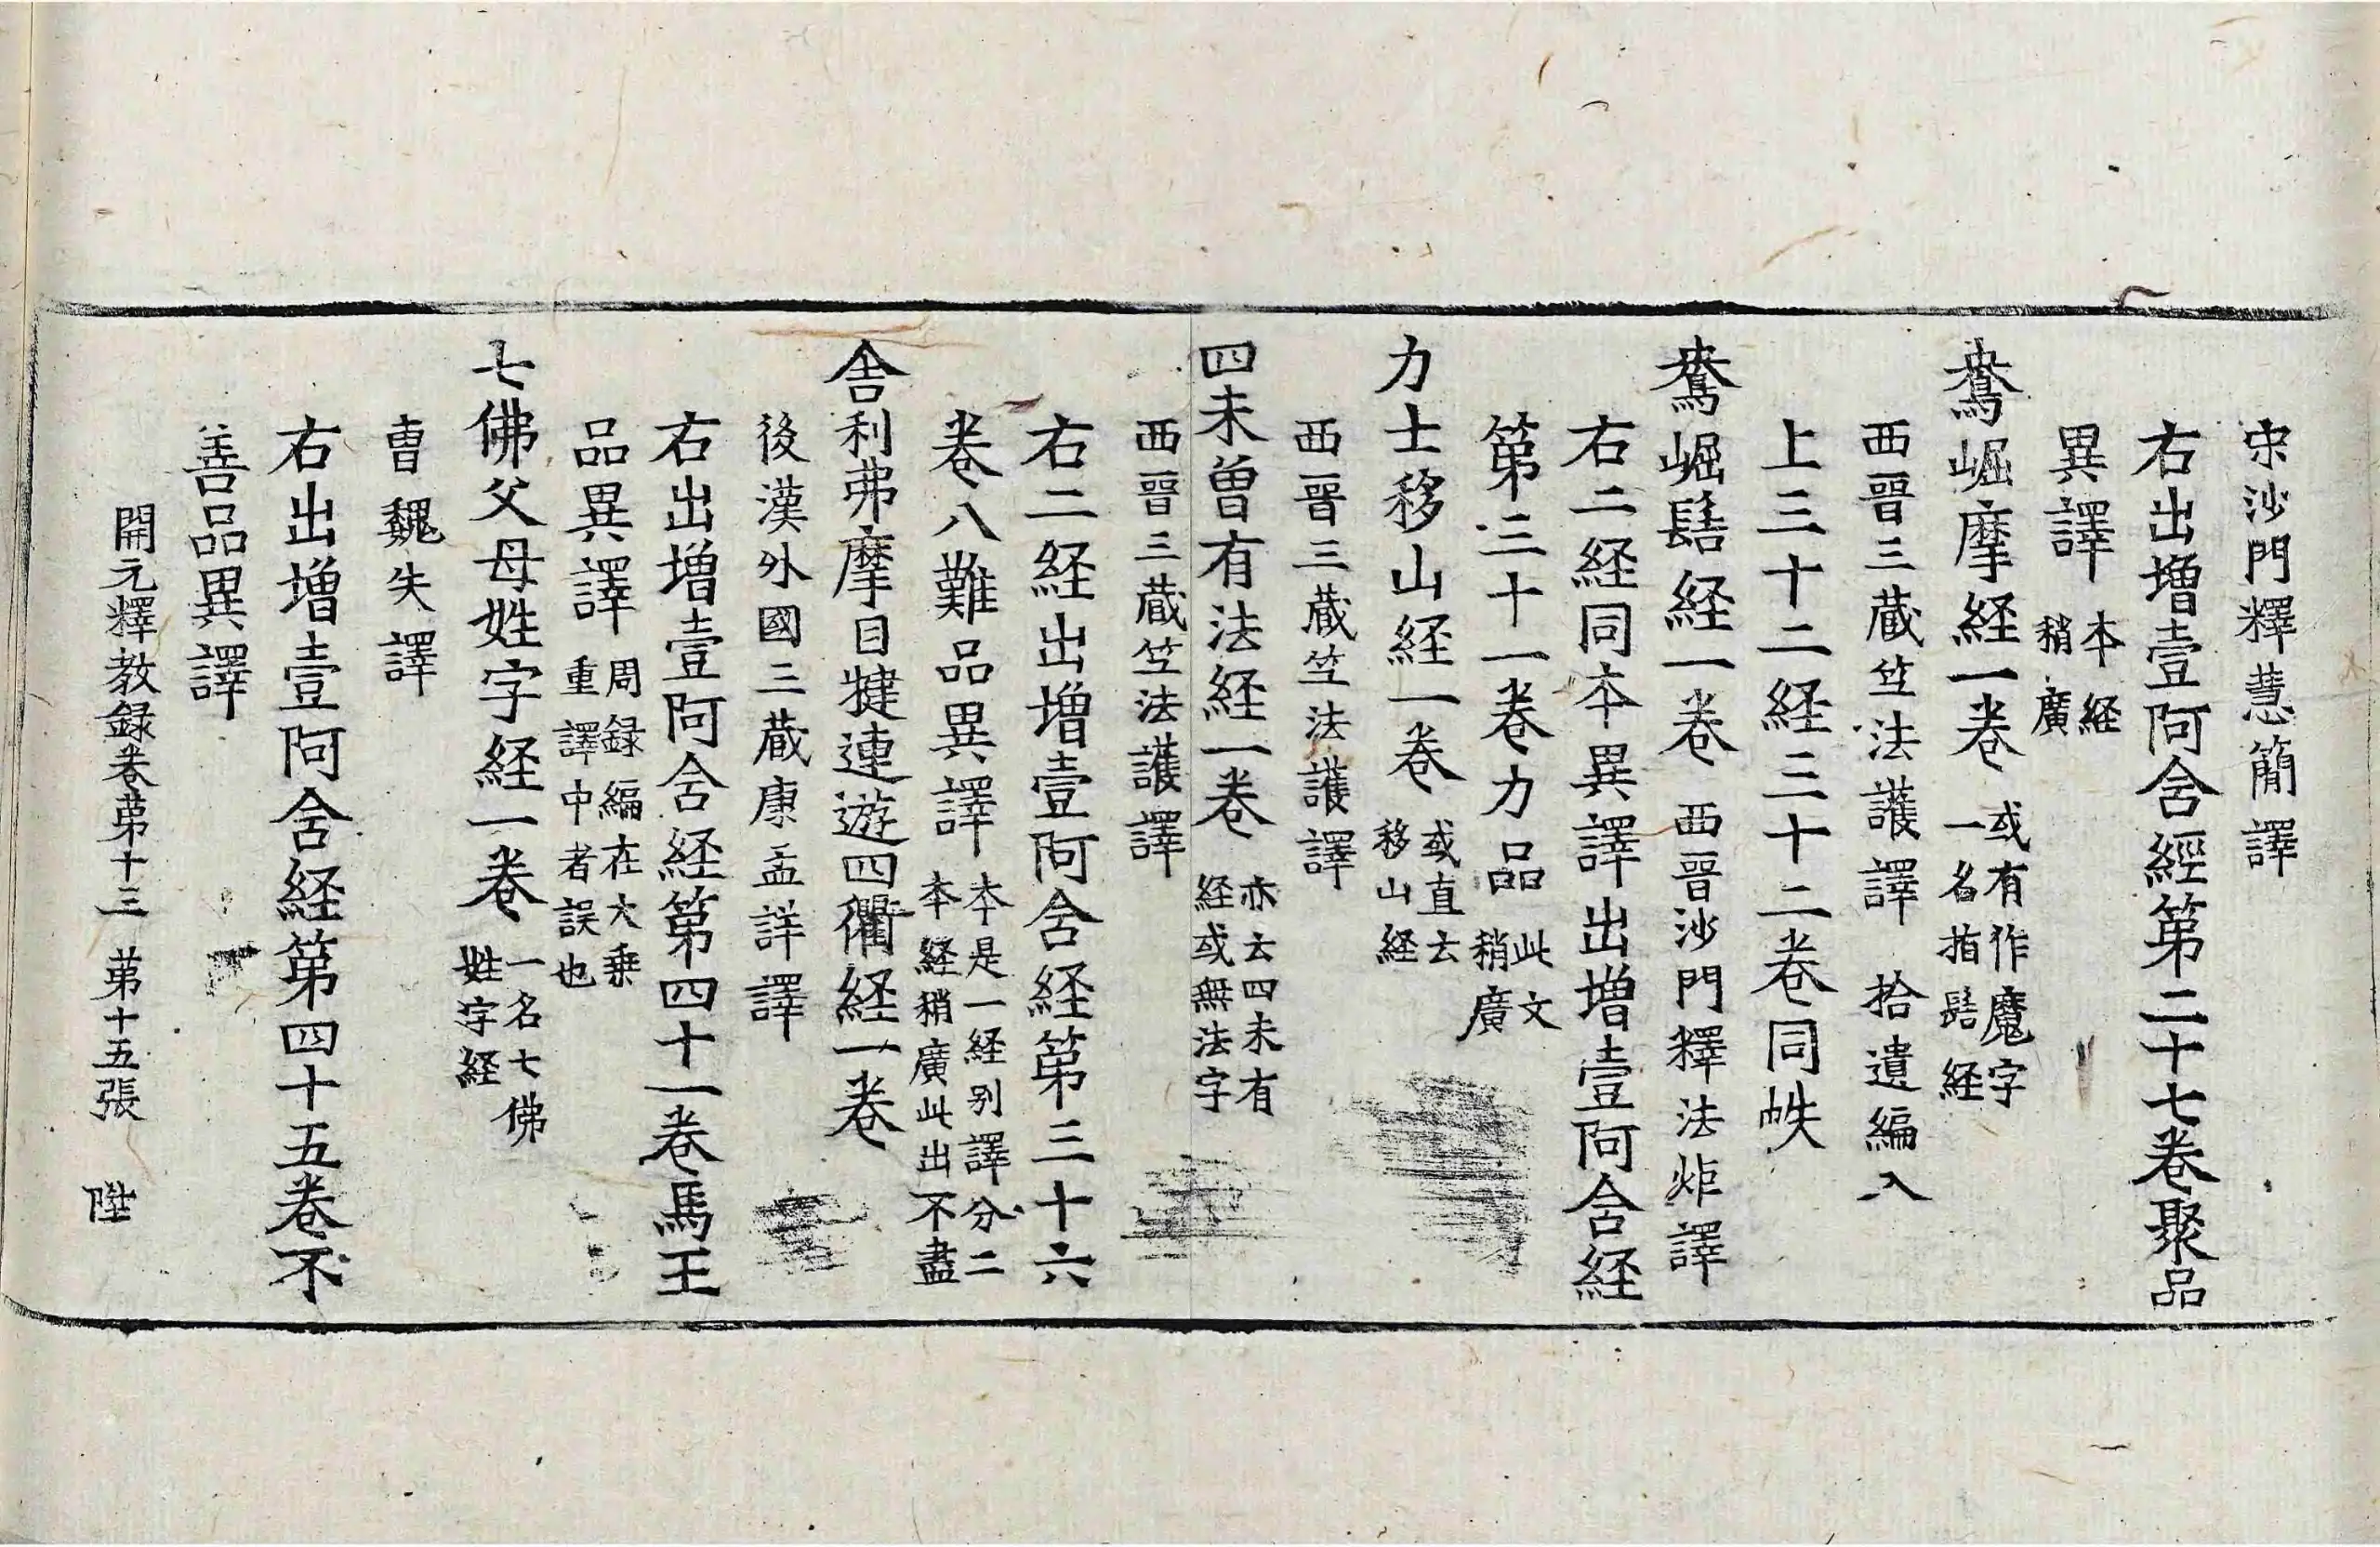 宋沙門釋慧簡譯
右出增壹阿含經第二十七卷聚品
異譯 本經稍廣
鴦崛摩経一卷 或有作魔字一名指髻経
西晉三藏竺法護譯 拾遺編入
上三十二経三十二卷同帙
鴦崛髻経一卷 西晉沙門釋法炬譯
右二経同本異譯出增壹阿含経
第三十一卷力品 此文稍廣
力士移山経一卷 或直云移山経
西晉三藏竺法護譯
四未曾有法経一卷 亦云四未有経或無法字
西晉三藏竺法護譯
右二経出增壹阿含経第三十六
卷八難品異譯 本是一経別譯分二本経稍廣此出不盡
舍利弗摩目揵連遊四衢経一卷
後漢外國三藏康孟詳譯
右出增壹阿含経第四十一卷馬王
品異譯 周録編在大乗重譯中者誤也
七佛父母姓字経一卷 一名七佛姓字経
曹魏失譯
右出增壹阿含経第四十五卷不
善品異譯
開元釋教録卷苐十三 苐十五張 陞